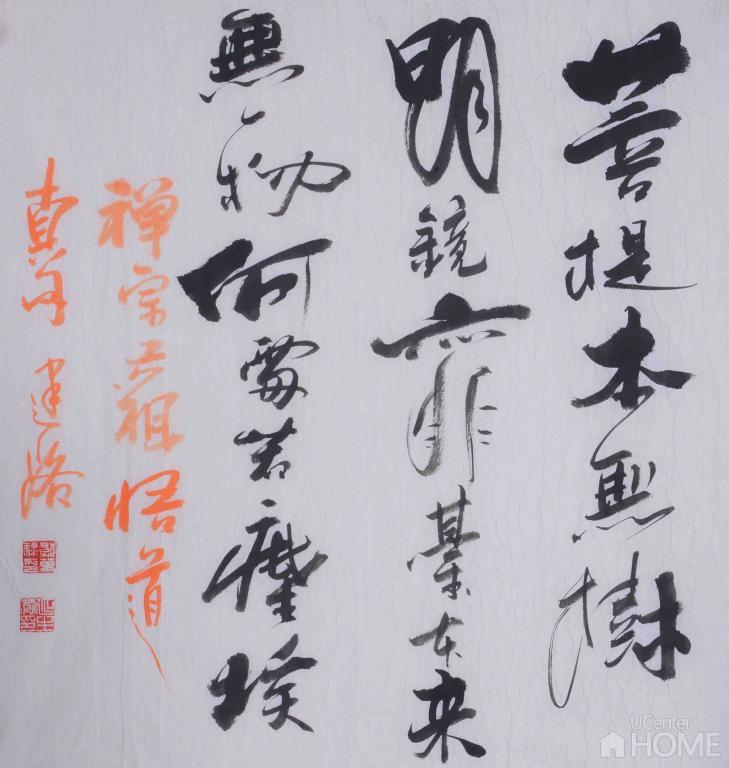 菩提本無樹
明鏡亦非臺本来
無一物何需若塵埃
禅宗六祖悟道
建洛
UCenter
HOME